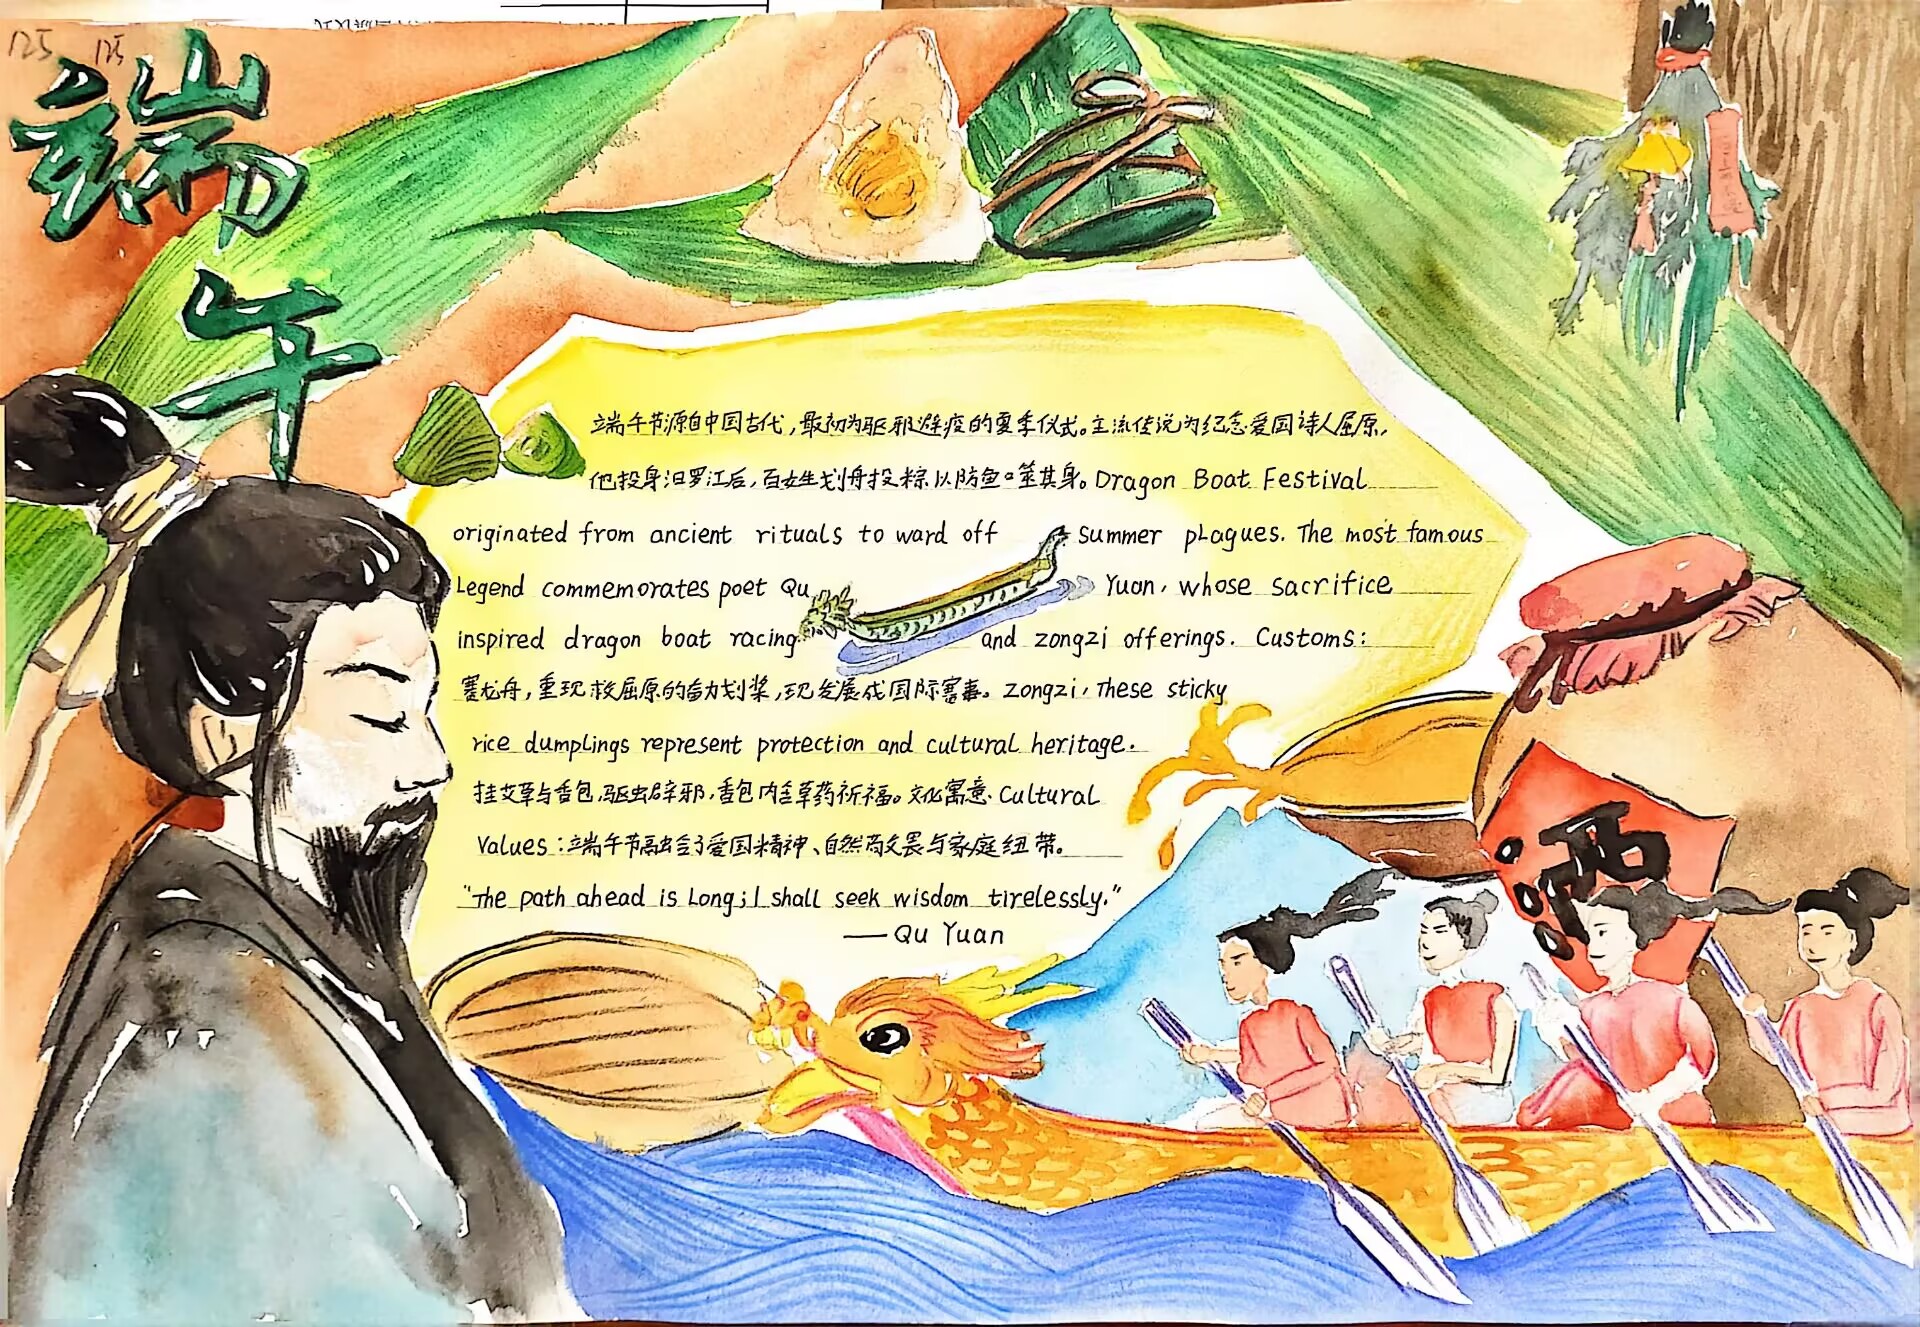 125 125
端午
端午节源自中国古代,最初为驱邪避疫的夏季仪式。主流传说为纪念爱国诗人屈原,
他投身汨罗江后,百姓划舟投粽以防鱼噬其身。Dragon Boat Festival
originated from ancient rituals to ward off summer plagues. The most famous
Legend commemorates poet Qu Yuan, whose sacrifice
inspired dragon boat racing and zongzi offerings. Customs:
赛龙舟,重现救屈原的奋力划桨,现发展成国际赛事。Zongzi, These sticky
rice dumplings represent protection and cultural heritage.
挂艾草与香包,驱虫辟邪,香包内含草药祈福。文化寓意. Cultural
Values:端午节融合了爱国精神、自然敬畏与家庭纽带。
"The path ahead is Long; I shall seek wisdom tirelessly."
— Qu Yuan
酒